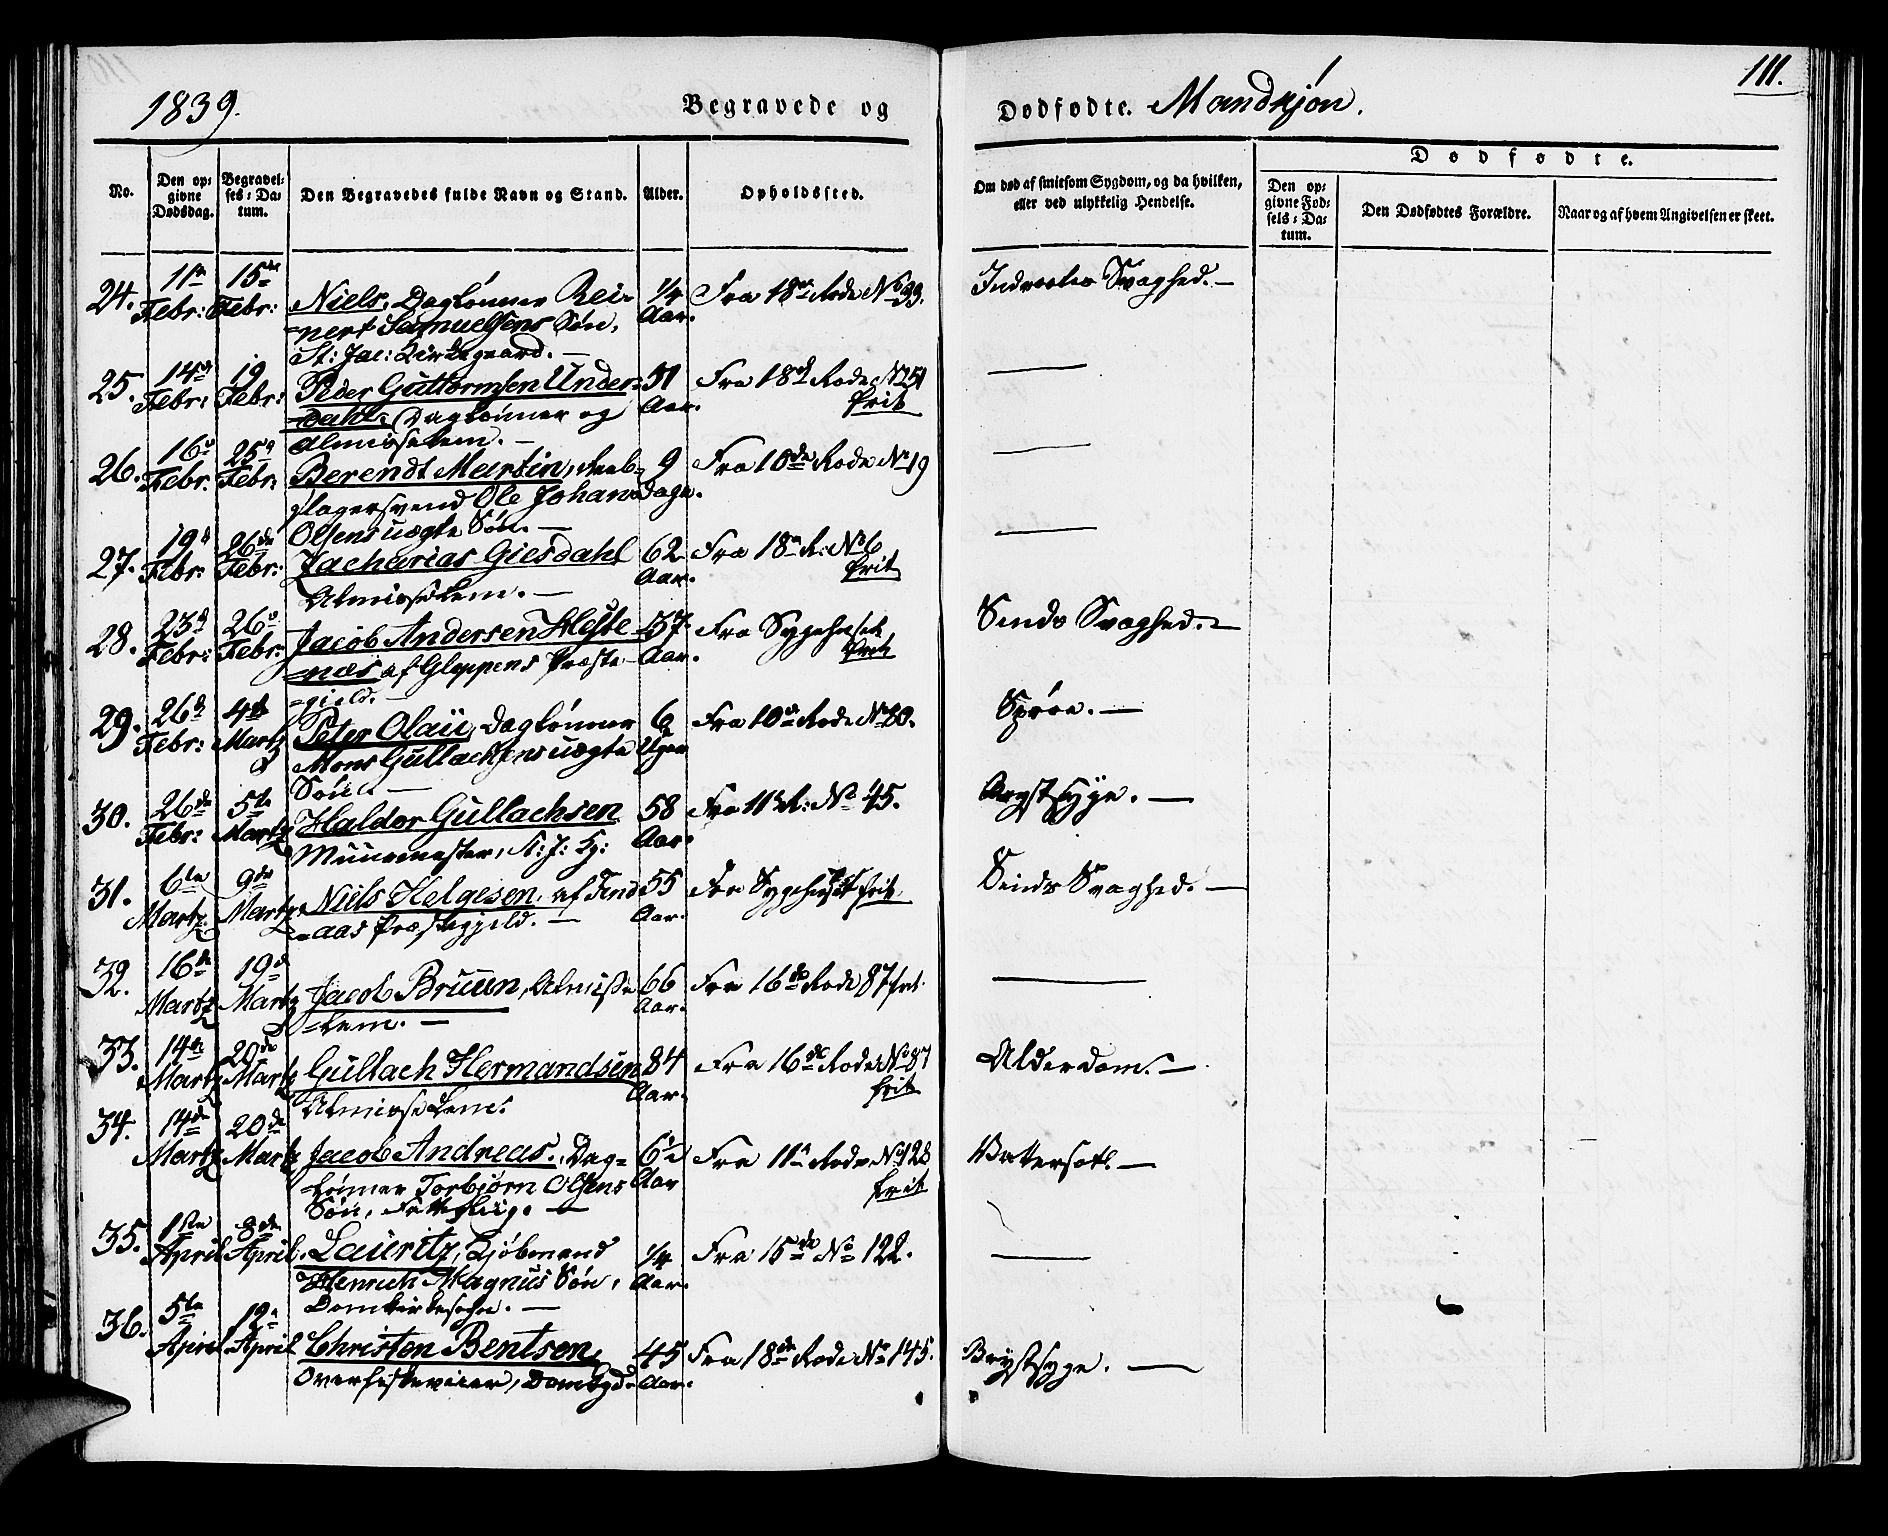 1839.
Begravede og
Dødfødte. Mandkjøn.
111.
No.
Den op-
givne
Dødsdag.
Begravel-
ses-Da-
tum.
Den Begravedes fulde Navn og Stand.
Alder.
Opholdssted.
Om død af smitsom Sygdom, og da hvilken,
eller ved ulykkelig Hendelse.
Dødfødte.
Den op-
givne Fød-
sels-Da-
tum.
Den Dødfødtes Forældre.
Naar og af hvem Angivelsen er skeet.
24. 11te Febr: 15de Febr: Niels, Daglønner Rei-
nert Samuelsens Søn,
St: Jac: Kirkegaard. —
1/4 Aar. Fra 18de Rode No 99. Indvortes Svaghed. —
25. 14de Febr: 19 Febr: Peder Guttormsen Under-
dahl, Daglønner og
Almisselem. —
51 Aar. Fra 18de Rode No 51 frit —
26. 16de Febr. 25de Febr: Berendt Martin, Reeb-
slagersvend Ole Johan
Olsens uægte Søn. —
9 dage. Fra 10de Rode No 19 —
27. 19de Febr: 26de Febr: Zacharias Giesdahl
Almisselem. —
62 Aar. Fra 18de R: No 6. frit —
28. 23de Febr: 26de Febr: Jacob Andersen Heste-
næs af Gloppens Præste-
gield. —
57. Aar. Fra Sygehuset frit Sinds Svaghed. —
29. 26de Febr: 4de Martz Peter Olaii, Daglønner
Mons Gullachsens uægte
Søn. —
6 Uger Fra 10de Rode No 80. Sprøe. —
30. 26de Febr: 5te Martz Haldor Gullachsen
Muurmester, St: J: Kg:
58 Aar. Fra 11te R: No 45. Brystsyge. —
31. 6te Martz 9de Martz Niels Helgesen, af Find-
aas Præstegjeld. —
55 Aar. Fra Sygehuset frit. Sinds Svaghed. —
32. 16de Martz 19de Martz Jacob Bruun, Almisse-
lem. —
66 Aar. Fra 16de Rode 87 frit. —
33. 14de Martz 20de Martz Gullach Hermandsen
Almisselem.
84 Aar. Fra 16de Rode No 87 frit Alderdom. —
34. 14de Martz 20de Martz Jacob Andreas, Dag-
lønner Torbjørn Olsens
Søn, Fattighuus. —
6½ Aar Fra 11te Rode No 128 frit Vatersot. —
35. 1ste April 8de April. Lauritz, Kjøbmand
Henrich Magnus Søn,
Domkirkesogn. —
1/4 Aar. Fra 15de No 122. —
36. 5te April 12te April Christen Bentsen,
Overfiskevrager, Domkgd.
45 Aar. Fra 18de Rode No 145. Brystsyge. —